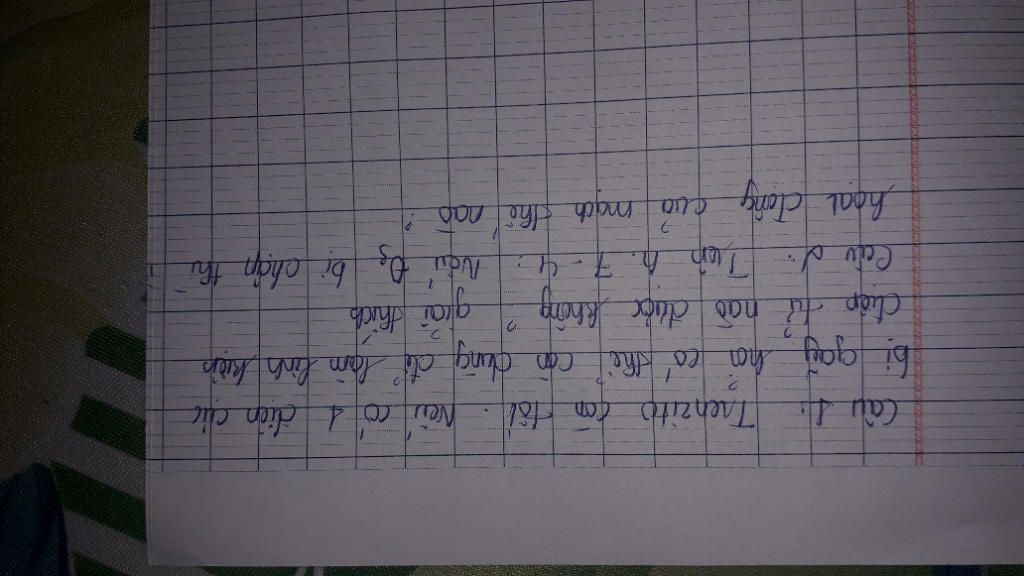 Câu 1: Tranzito còn tốt. Nếu có 1 điện cực
bị gãy hỏi có thể còn dùng để làm linh kiện
điện tử nào được không? giải thích
Câu 2: Trên h. 7-4: Nếu Đ2 bị chập thì
hoạt động của mạch thế nào?